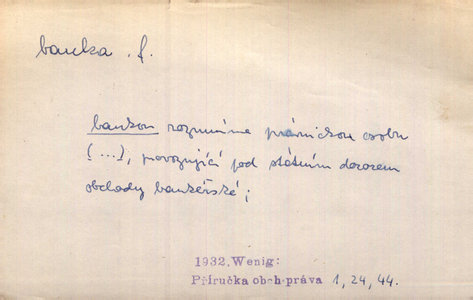 banka f.
bankou rozumíme právnickou osobu
(...), provozující pod státním dozorem
obchody bankéřské;
1932, Wenig:
Příručka obch.práva 1, 24, 44.